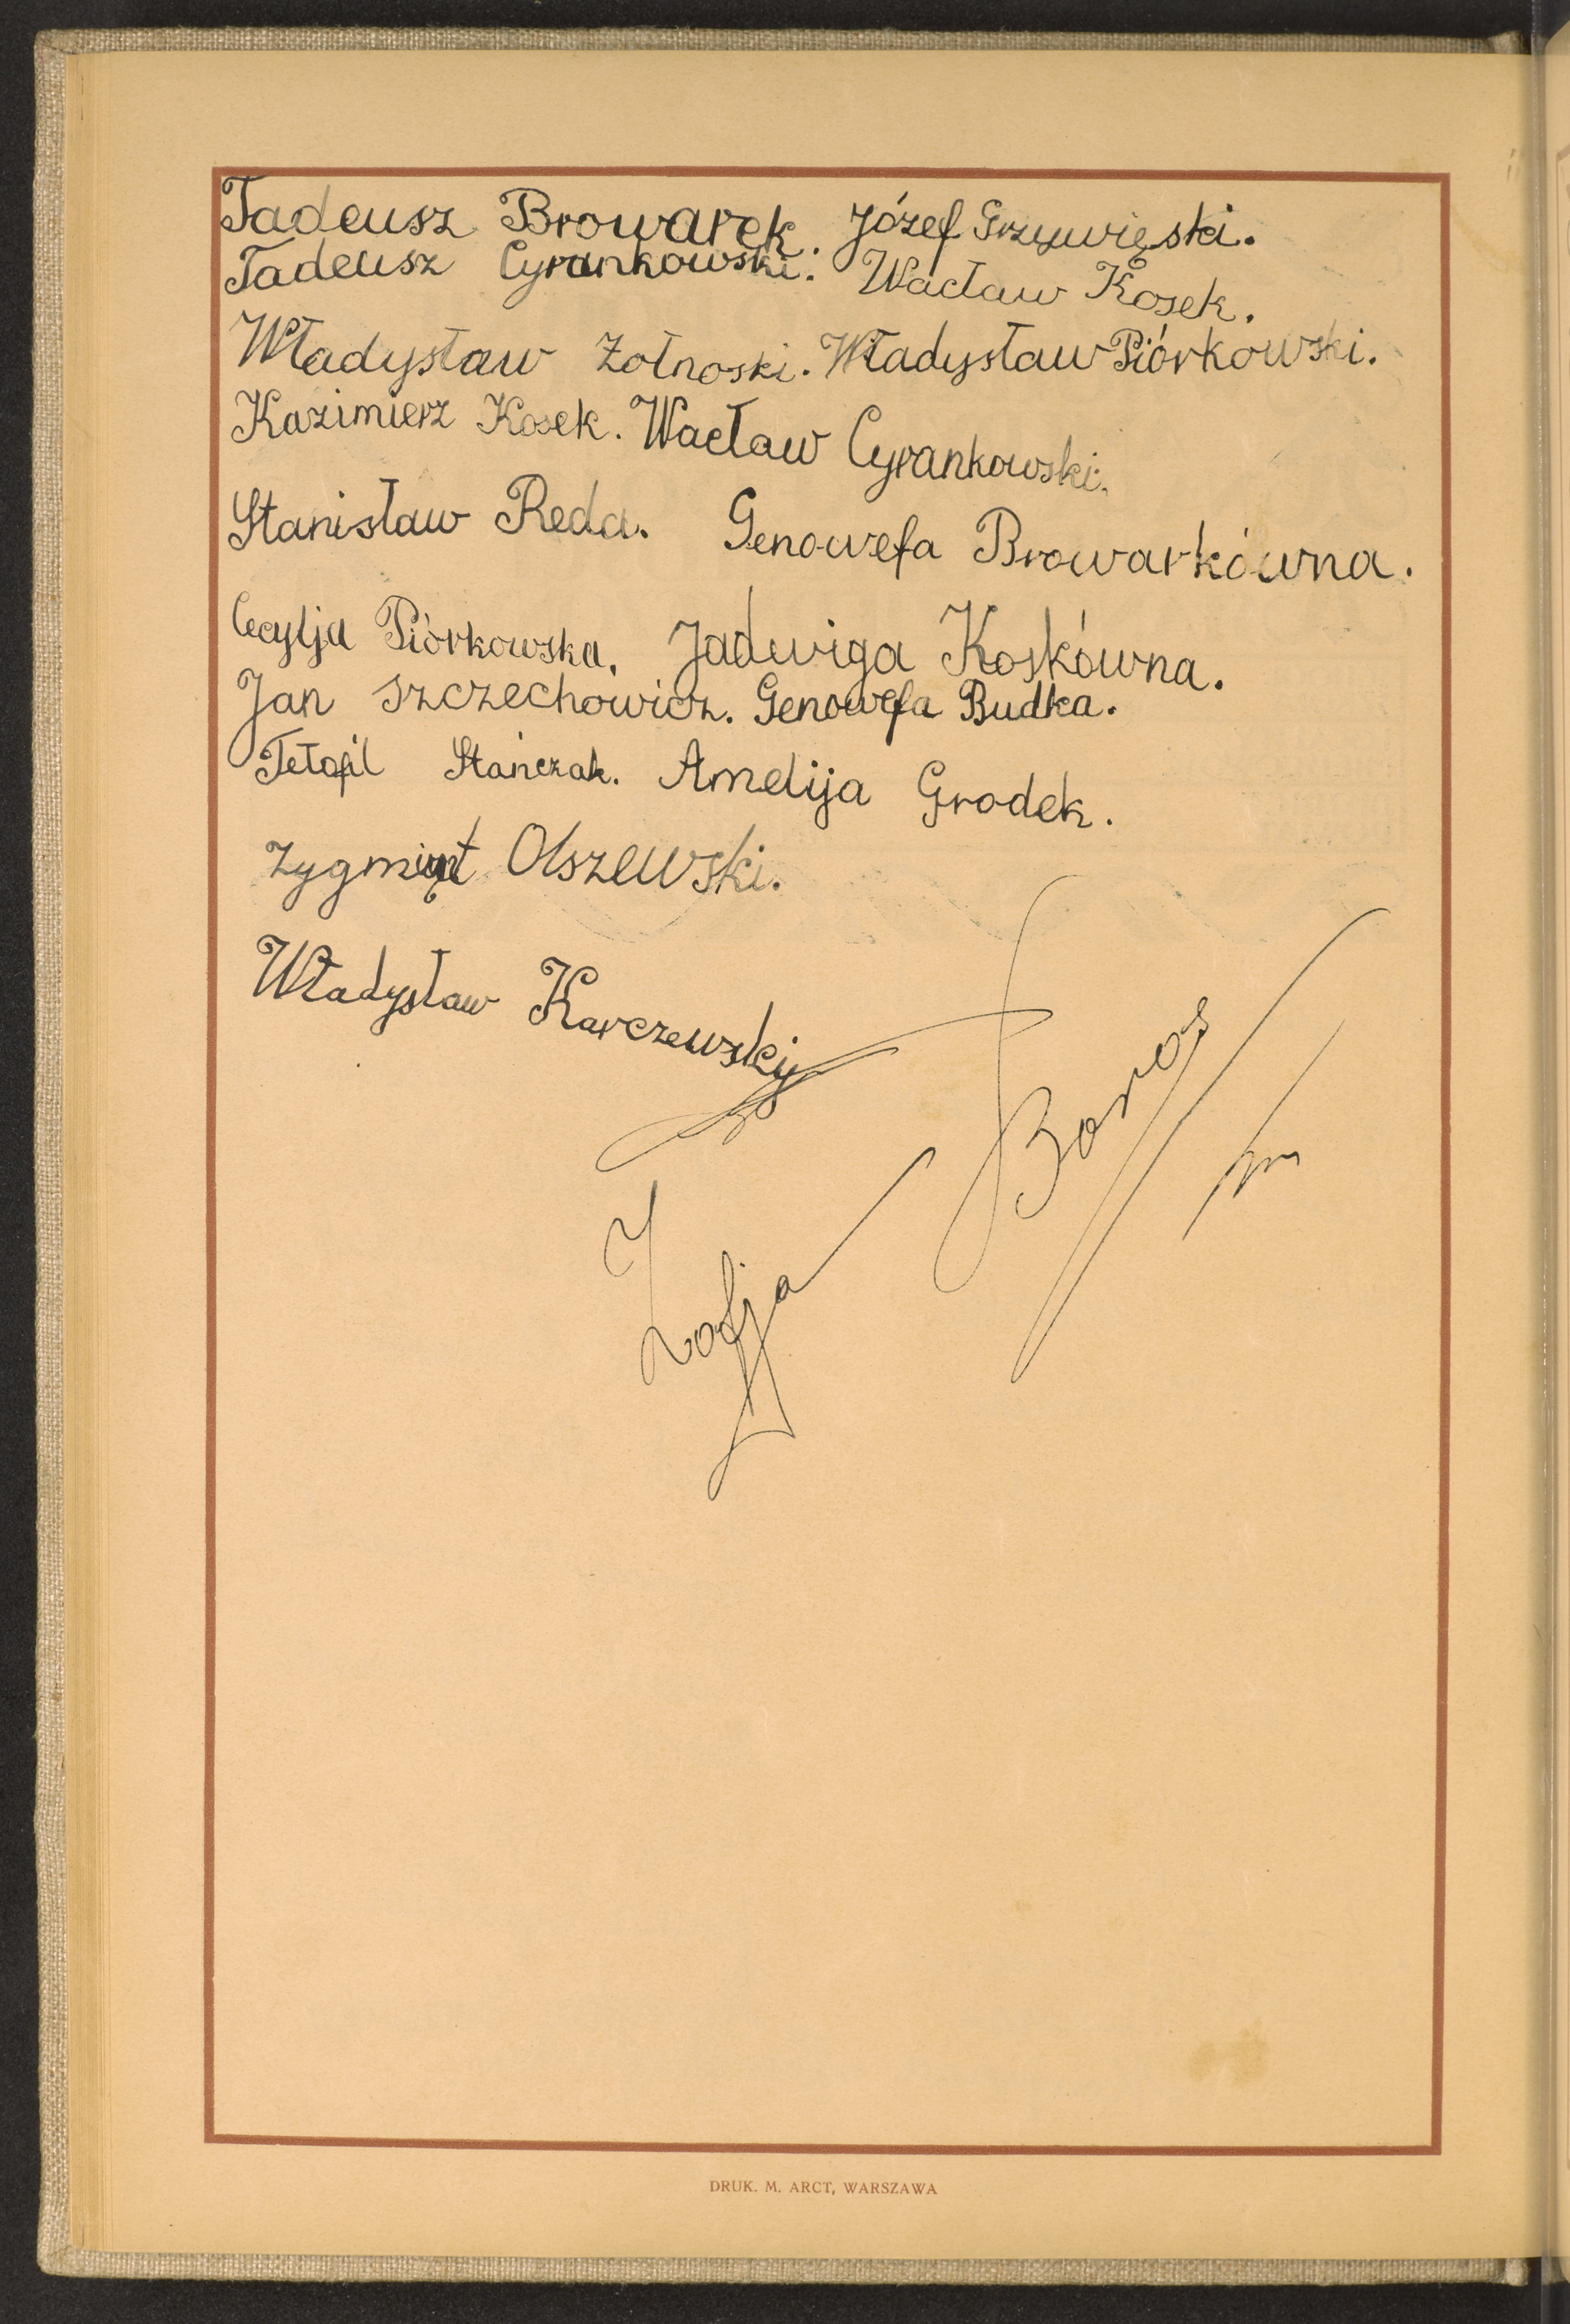 Tadeusz Browarek. Józef Grzywięski.
Tadeusz Cyrankowski. Wacław Kosek.
Władysław Zołnoski. Władysław Piórkowski.
Kazimierz Kosek. Wacław Cyrankowski.
Stanisław Reda. Genowefa Browarkówna.
Cecylja Piórkowska. Jadwiga Koskówna.
Jan Szczechowicz. Genowefa Budka.
Tetofil Stańczak. Amelija Grodek.
Olszewski.
Władysław Karczewski
Zofja
DRUK. M. ARCT, WARSZAWA